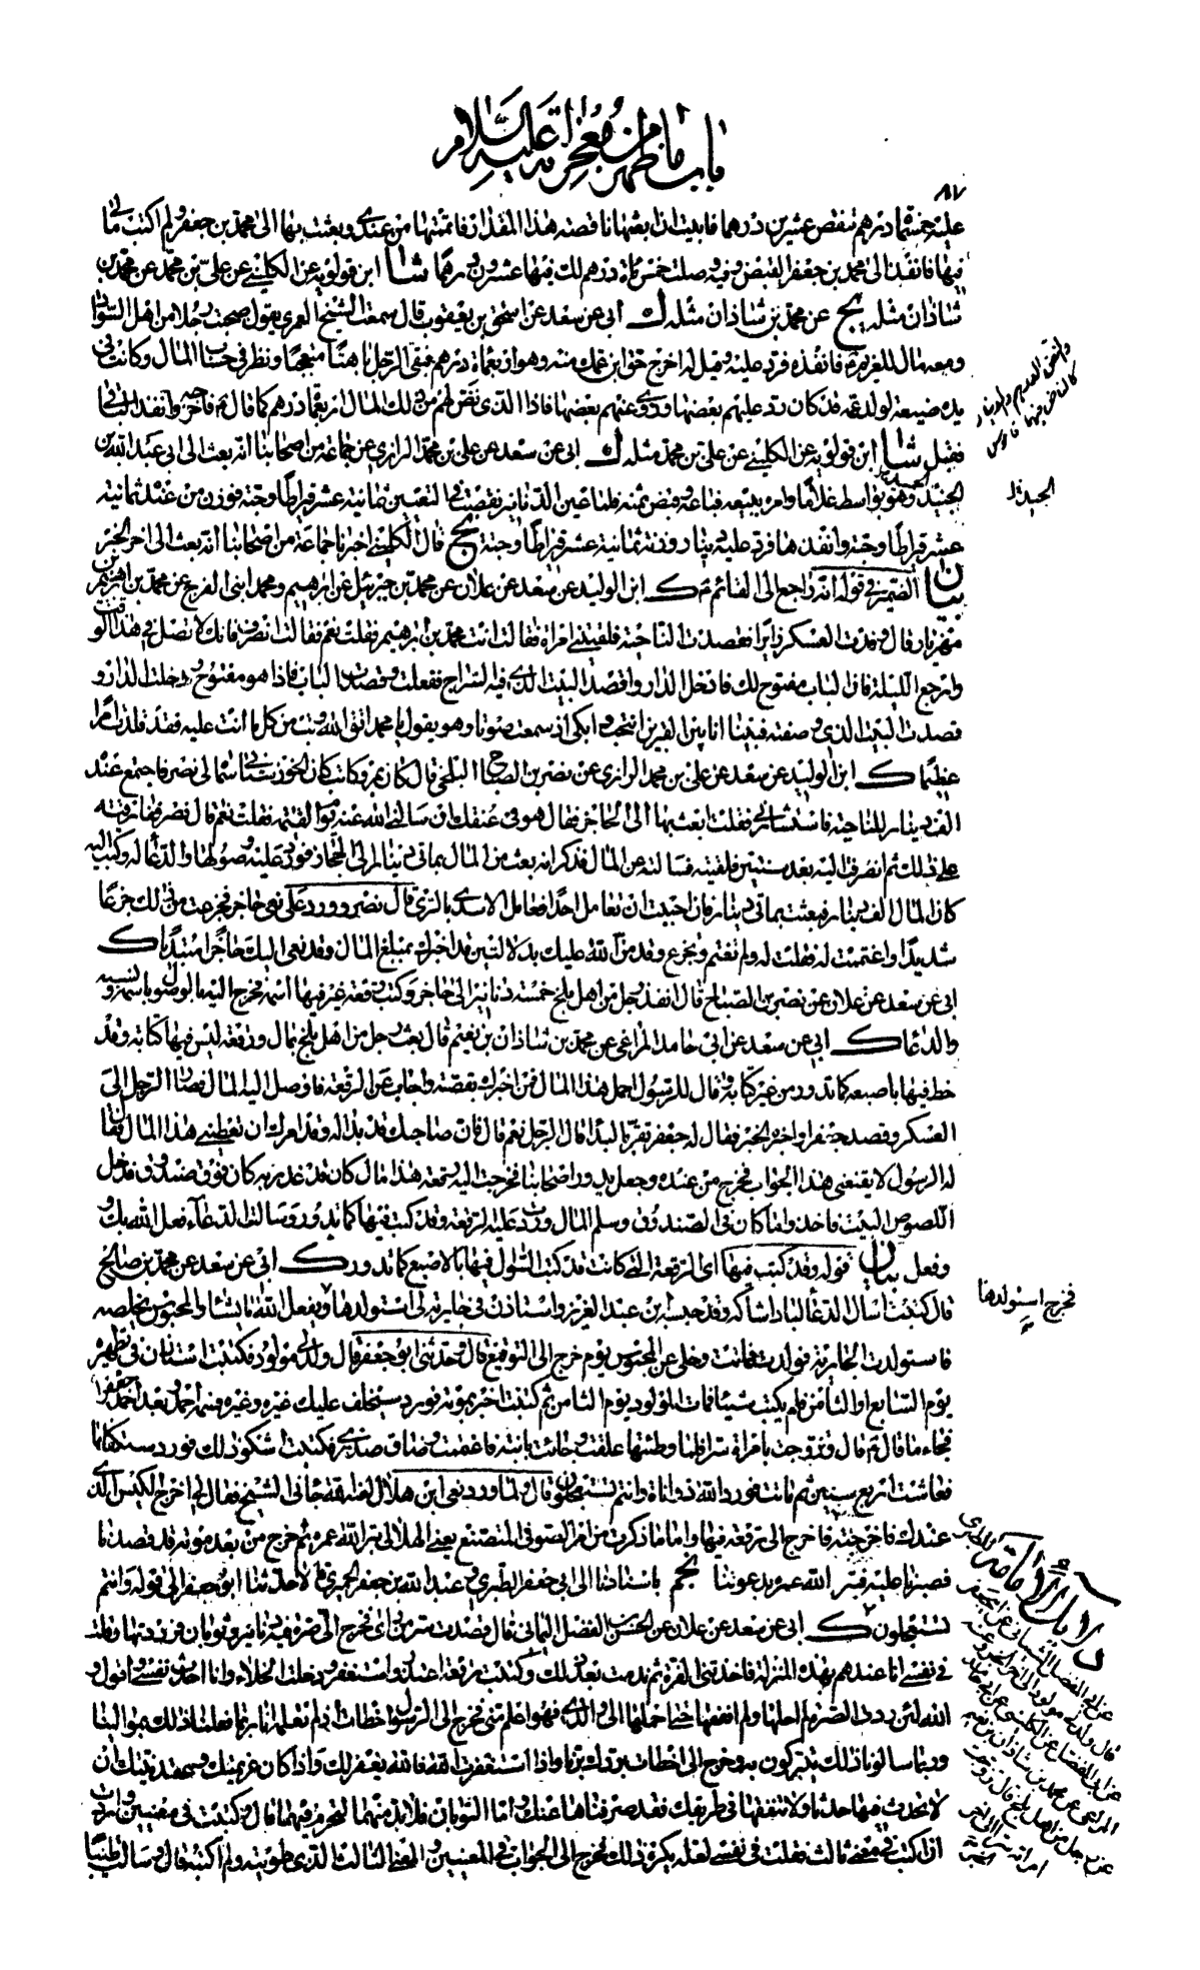 باب ما ظهر من معجزاته عليه السلام
٨٧
عليه خمسمائة درهم تنقص عشرين درهما فابيت ان ابعثها ناقصة هذا المقدار فاتممتها من عندي وبعثت بها الى محمد بن جعفر ولم اكتب مالي
فيها فانفذ الى محمد بن جعفر القبض وفيه وصلت خمس مائة درهم لك فيها عشرون درهما شا ابن قولويه عن الكليني عن علي بن محمد عن محمد بن
شاذان مثله يج عن محمد بن شاذان مثله ك ابي عن سعد عن اسحق بن يعقوب قال سمعت الشيخ العمري يقول صحبت رجلا من اهل السواد
ومعه مال للغريم فانفذه فرد عليه وقيل له اخرج حق ابن عمك منه وهو اربعمائة درهم فبقى الرجل باهتا متعجبا ونظر في حساب المال وكانت في
يده ضيعة لولد عمه قد كان رد عليهم بعضها وزوى عنهم بعضها فاذا الذي نض لهم من ذلك المال اربعمائة درهم كما قال فاخرجه وانفذ الباقي
فقبل شا ابن قولويه عن الكليني عن علي بن محمد مثله ك ابي عن سعد عن علي بن محمد الرازي عن جماعة من اصحابنا انه بعث الى ابي عبد الله بن
الجنيد وهو بواسط غلاما وامر ببيعه فباعه وقبض ثمنه فلما عير الدنانير نقصت في التعيير ثمانية عشر قيراطا وحبة فوزن من عنده ثمانية
عشر قيراطا وحبة وانفذها فرد عليه دينارا وزنه ثمانية عشر قيراطا وحبة يج قال الكليني اخبرنا جماعة من اصحابنا انه بعث الى اخر الخبر
بيان الضمير في قوله انه راجع الى القائم ك ابن الوليد عن سعد عن علان عن محمد بن جبرئيل عن ابراهيم ومحمد ابنى الفرج عن محمد بن ابراهيم بن
مهزيار قال وفدت العسكر زائرا فقصدت الناحية فلقيتني امراة فقالت انت محمد بن ابراهيم فقلت نعم فقالت انصرف فانك لا تصل في هذا الوقت
وارجع الليلة فان الباب مفتوح لك فادخل الدار واقصد البيت الذي فيه السراج ففعلت وقصدت الباب فاذا هو مفتوح ودخلت الدار و
قصدت البيت الذي وصفته فبينا انا بين القبرين انتحب وابكي اذ سمعت صوتا وهو يقول يا محمد اتق الله وتب من كل ما انت عليه فقد قلدت امرا
عظيما ك ابن الوليد عن سعد عن علي بن محمد الرازي عن نصر بن الصباح البلخي قال كان بمرو كاتب كان للخوزستاني سماه لي نصر فاجتمع عنده
الف دينار للناحية فاستشارني فقلت ابعث بها الى الحاجز فقال هو في عنقك ان سالني الله عنه يوم القيمة فقلت نعم قال نصر ففارقته
على ذلك ثم انصرفت اليه بعد سنتين فلقيته فسالته عن المال فذكر انه بعث من المال بمائتي دينار الى الحاجز فورد عليه وصولها والدعا له وكتب اليه
كان المال الف دينار فبعثت بمائتي دينار فان احببت ان تعامل احدا فعامل الاسدي بالري قال نصر وورد علي نعي حاجز فجزعت من ذلك جزعا
شديدا واغتممت له فقلت له ولم تغتم وتجزع وقد من الله عليك بدلالتين قد اخبرك بمبلغ المال وقد نعى اليك حاجزا مبتديا ك
ابي عن سعد عن علان عن نصر بن الصباح قال انفذ رجل من اهل بلخ خمسة دنانير الى حاجز وكتب رقعة غير فيها اسمه فخرج اليه بالوصول باسمه ونسبه
والدعا ك ابي عن سعد عن ابي حامد المراغي عن محمد بن شاذان بن نعيم قال بعث رجل من اهل بلخ بمال ورقعة ليس فيها كتابة وقد
خط فيها باصبعه كما تدور من غير كتابة وقال للرسول احمل هذا المال فمن اخبرك بقصته واجاب عن الرقعة فاوصل اليه المال فصار الرجل الى
العسكر وقصد جعفرا واخبره الخبر فقال له جعفر تقر بالبدا قال الرجل نعم قال فان صاحبك قد بدا له وقد امرك ان تعطيني هذا المال فقال
له الرسول لا يقنعني هذا الجواب فخرج من عنده وجعل يدور على اصحابنا فخرجت اليه رقعة هذا مال كان قد غدر به كان فوق صندوق فدخل
اللصوص البيت فاخذوا ما كان في الصندوق وسلم المال وردت عليه الرقعة وقد كتب فيها كما تدور وسالت الدعاء فعل الله بك و
فعل بيان قوله وقد كتب فيها اى الرقعة التي كانت قد كتب السؤل فيها بالاصبع كما تدور ك ابي عن سعد عن محمد بن صالح
قال كتبت اسال الدعا لباداشاكه وقد حبسه ابن عبد العزيز واستاذن في جارية لي استولدها فخرج استولدها ويفعل الله ما يشا والمحبوس يخلصه
فاستولدت الجارية فولدت فماتت وخلى عن المحبوس يوم خرج الى التوقيع قال وحدثني ابو جعفر قال ولد لي مولود فكتبت استاذن في تطهيره
يوم السابع او الثامن فلم يكتب شيئا فمات المولود يوم الثامن ثم كتبت اخبر بموته فورد سيخلف عليك غيره وغيره فسمه احمد وبعد احمد جعفرا
فجاء ما قال قال وتزوجت بامراة سرا فلما وطئتها علقت وجاءت بابنة فاغتممت وضاق صدري فكتبت اشكو ذلك فورد ستكفاها
فعاشت اربع سنين ثم ماتت فورد الله ذو اناة وانتم تستعجلون قال ولما ورد نعي ابن هلال لعنه الله جاءني الشيخ فقال لي اخرج الكيس الذي
عندك فاخرجته فاخرج الى رقعة فيها واما ما ذكرت من امر الصوفي المتصنع يعني الهلالي بتر الله عمره ثم خرج من بعد موته قد قصدنا
فصبرنا عليه فبتر الله عمره بدعوتنا نجم باسنادنا الى ابي جعفر الطبري عن عبد الله بن جعفر الحميري قال حدثنا ابو جعفر الى قوله وانتم
تستعجلون ك ابي عن سعد عن علان عن الحسن بن الفضل اليماني قال قصدت سر من راى فخرج الى صرة فيها دنانير وثوبان فرددتها وقلت
في نفسي انا عندهم بهذه المنزلة فاخذتني الغرة ثم ندمت بعد ذلك وكتبت رقعة اعتذر واستغفر ودخلت الخلاء وانا احدث نفسي واقول و
الله لئن ردت الصرة لم احلها ولم انفقها حتى احملها الى والدي فهو اعلم مني فخرج الى الرسول اخطات اذ لم تعلمه انا ربما فعلنا ذلك بموالينا
وربما سالونا ذلك يتبركون به وخرج الى اخطات بردك برنا واذا استغفرت الله فالله يغفر لك واذا كان عزيمتك وعقد نيتك ان
لا تحدث فيها حدثا ولا تنفقها في طريقك فقد صرفناها عنك واما الثوبان فلا بد منهما لتحرم فيهما قال وكتبت في معنيين واردت
ان اكتب في معنى ثالث فقلت في نفسي لعله يكره ذلك فخرج الى الجواب في المعنيين والمعنى الثالث الذي طويته ولم اكتبه قال وسالت طيبا
الجنيد خ
فخرج استولدها